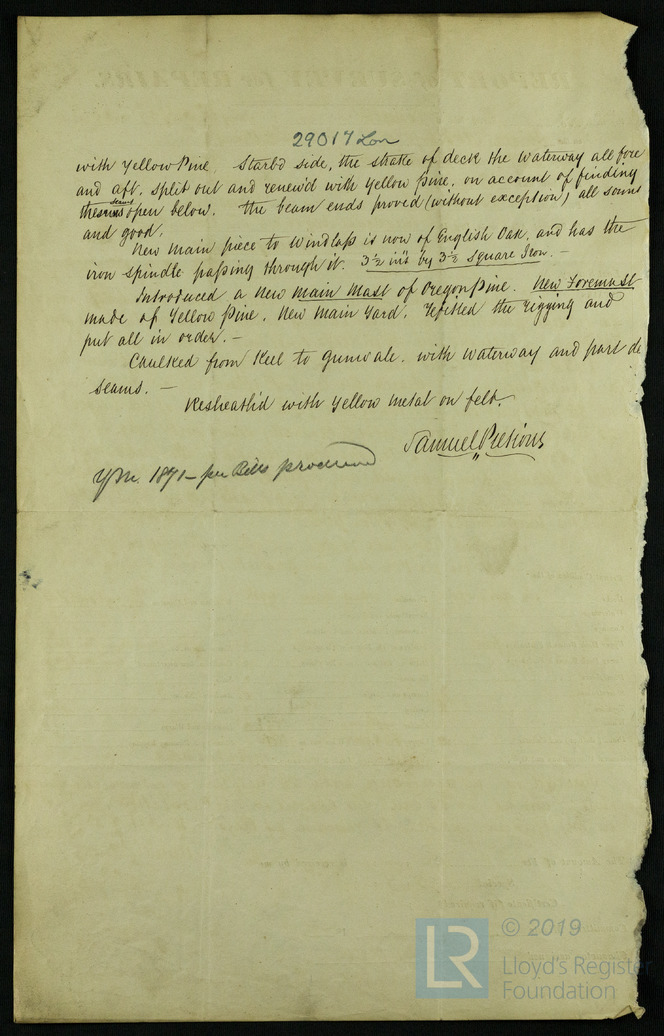 29017 Lon
with Yellow Pine. Starb'd side, the strake of deck the waterway all fore
and aft, split out and renew'd with Yellow Pine, on account of finding
seams
the open below. The beam ends proved (without exception) all sound
and good.
New main piece to Windlass is now of English Oak, and has the
iron spindle passing through it. 3½ in's by 3½ Square Iron. —
Introduced a New Main Mast of Oregon Pine. New Foremast
made of Yellow Pine, New Main Yard, refitted the rigging and
put all in order. —
Caulked from Keel to Gunwale, with waterway and part de
seams. —
Resheath'd with Yellow Metal on felt.
Samuel
YM. 1871 — per Bills produced
LR
© 2019
Lloyd's Register
Foundation